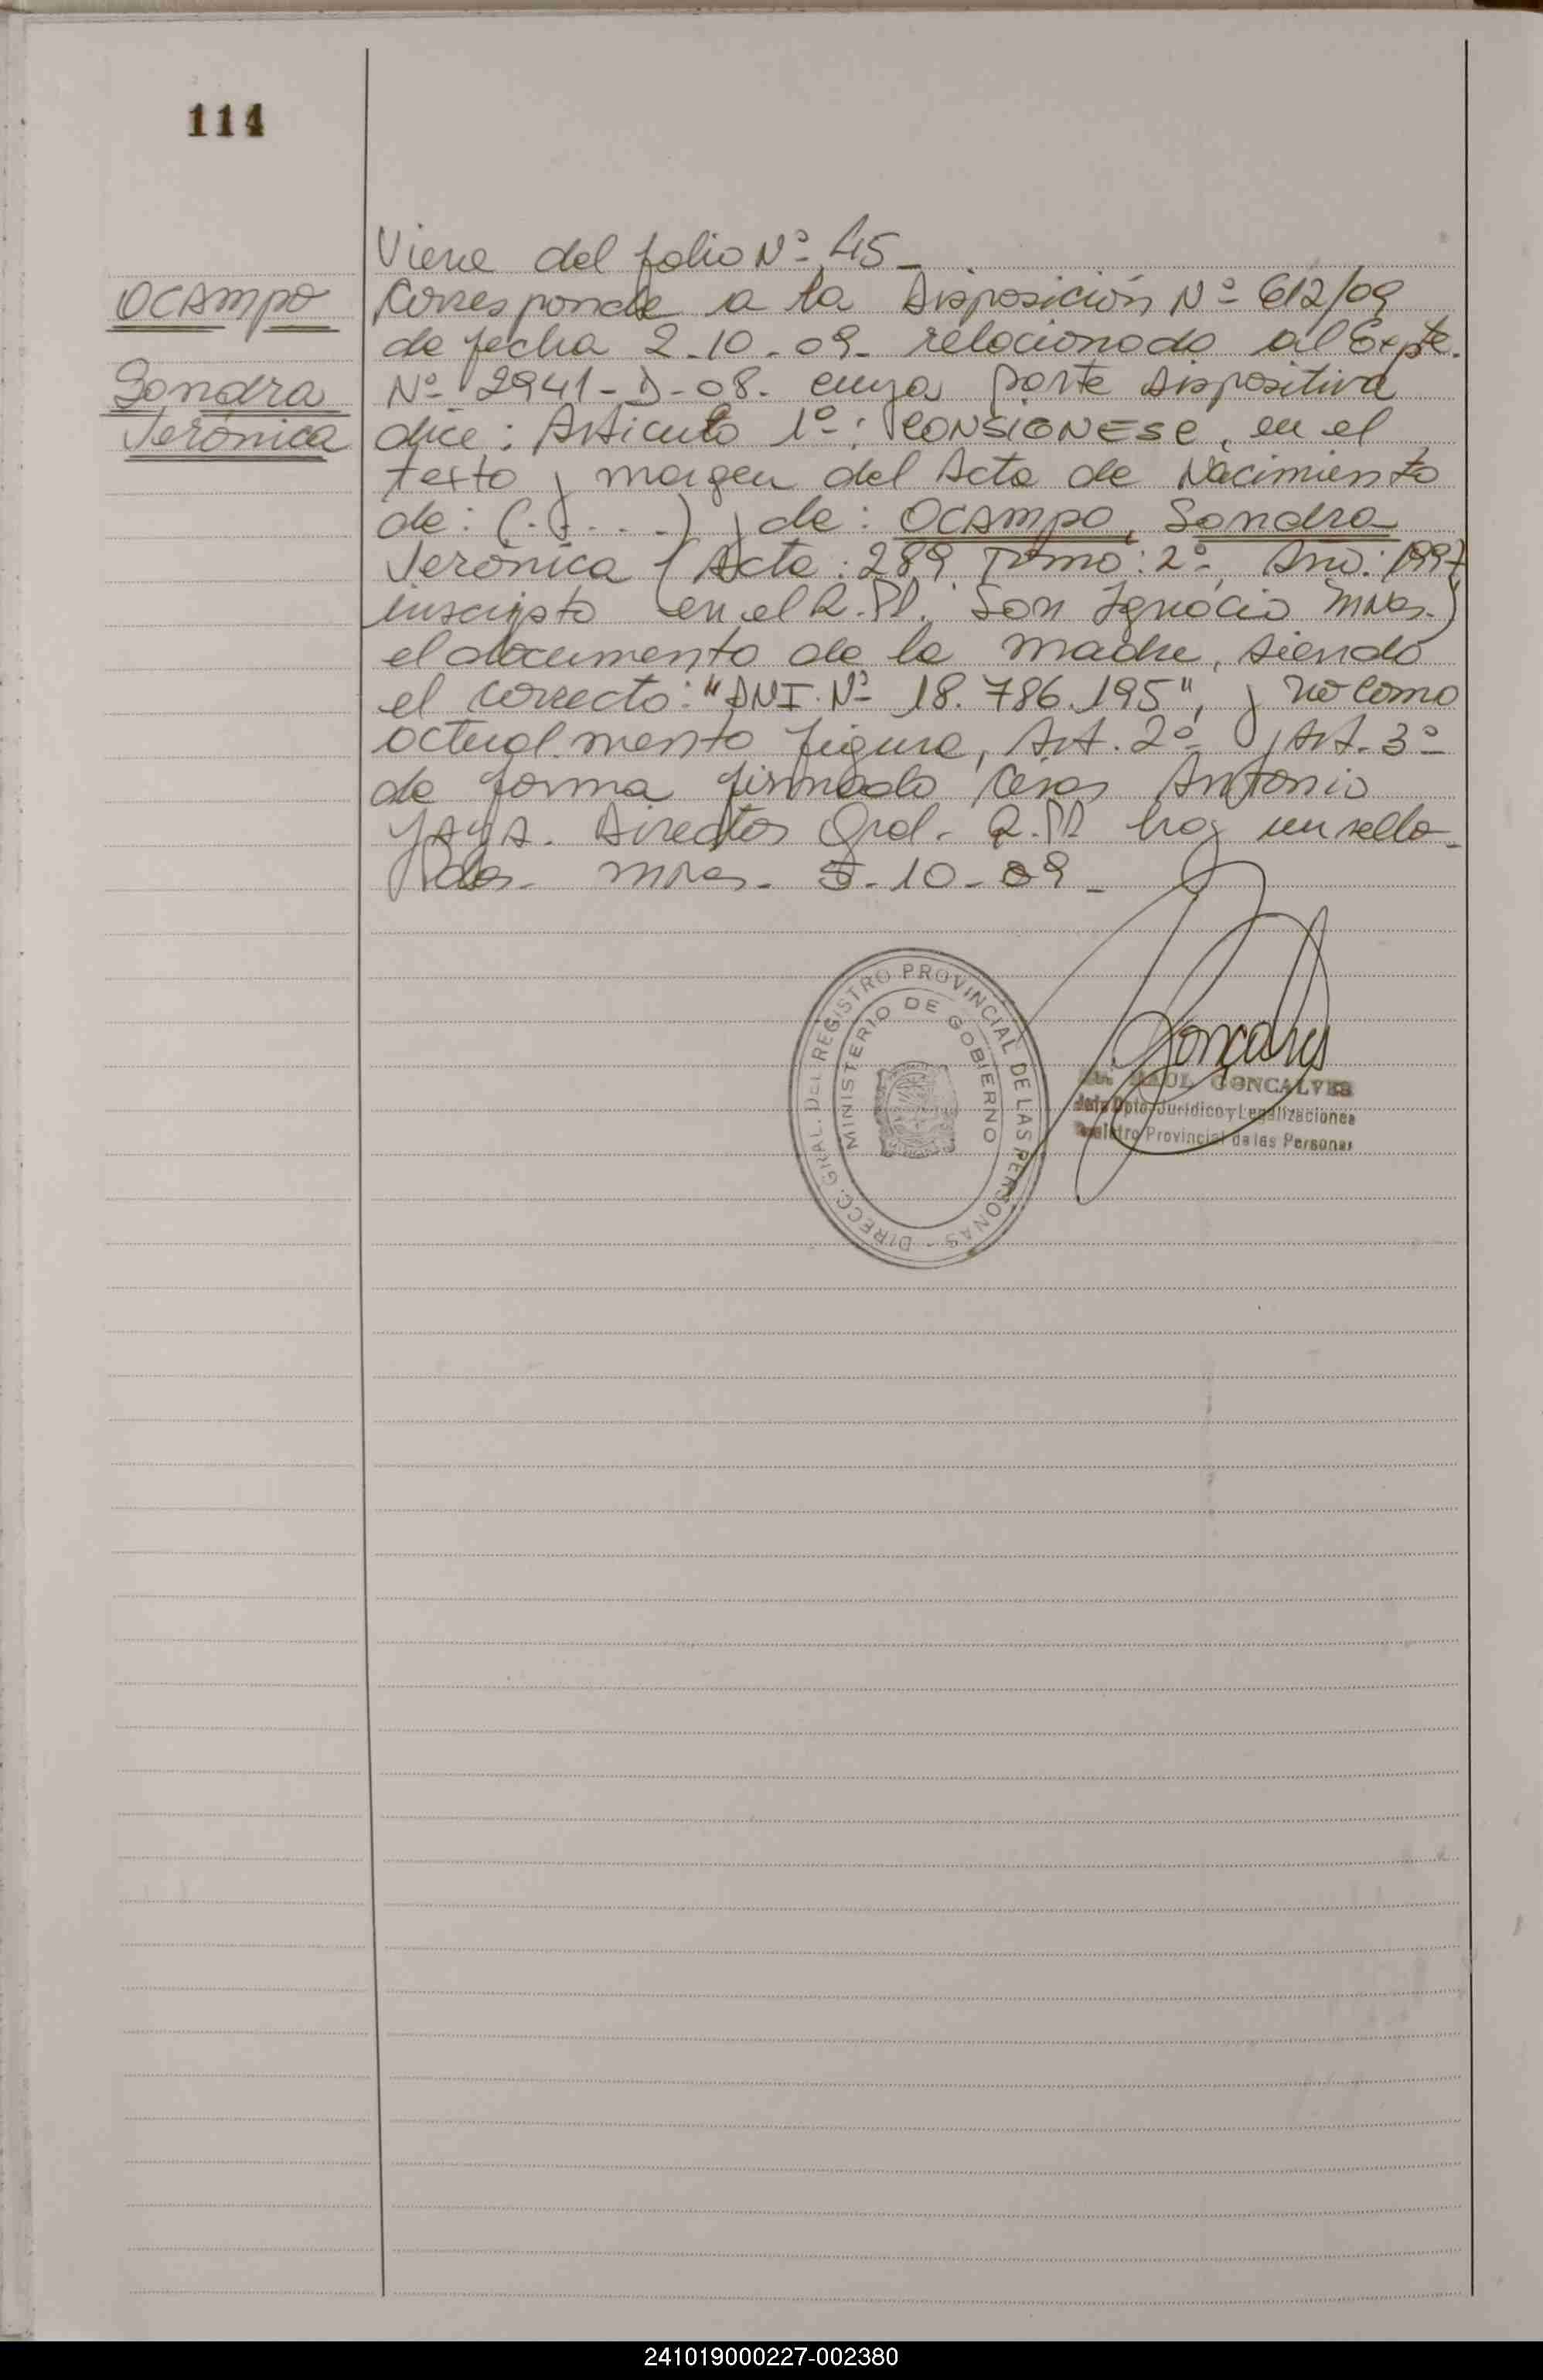 114
Viene del folio Nº 45-
OCAMPO
Sandra
Verónica
Corresponde a la Disposición Nº 612/09
de fecha 2-10-09- relacionado al Expte.
Nº 2941-D-08. cuya parte dispositiva
dice: Articulo 1º: CONSIGNESE, en el
texto y margen del Acta de Nacimiento
de: (......) y de: OCAMPO, Sandra
Verónica (Acta: 289 Tomo: 2º, Año: 1997
inscripto en el R.PP. San Ignacio Mnes.)
el documento de la madre, siendo
el correcto: "DNI. Nº 18.786.195", y no como
actualmente figura, Art. 2º y Art. 3º
de forma firmado Antonio
Director Gral. R.PP hay un sello-
Pdas. Mnes. 5-10-09-
DIRECC. GRAL. DEL REGISTRO PROVINCIAL DE LAS PERSONAS -
MINISTERIO DE GOBIERNO
Goncalves
RAUL GONCALVES
Jefe Dpto. Jurídico y Legalizaciones
Registro Provincial de las Personas
241019000227-002380